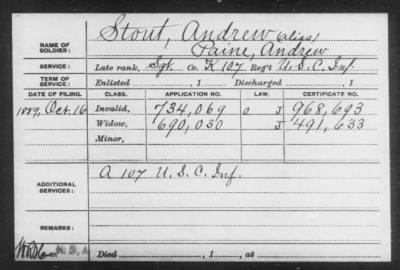 Stout, Andrew (alias)
NAME OF SOLDIER: Paine, Andrew
SERVICE: Late rank, Sgt. Co. K 107 Reg't U.S.C. Inf.
TERM OF SERVICE: Enlisted , 1 Discharged , 1
DATE OF FILING. CLASS. APPLICATION NO. LAW. CERTIFICATE NO.
1889, Oct. 16 Invalid, 734,069 J 968,693
Widow, 690,030 J 491,633
Minor,
ADDITIONAL SERVICES: A 107 U.S.C. Inf.
REMARKS:
Died , 1 , at